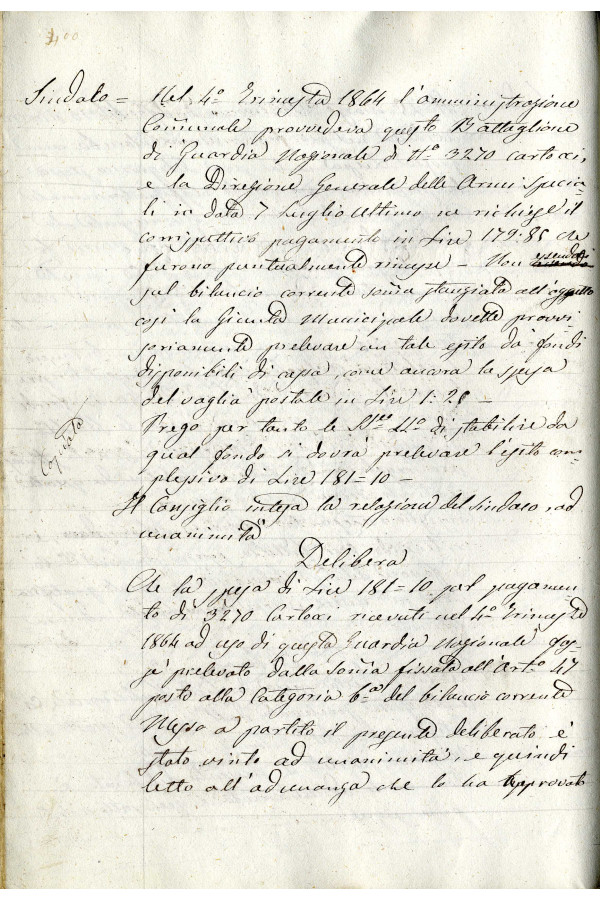 400
Sindaco = Nel 4º Trimestre 1864 l'amministrazione
Comunale provvedeva questo Battaglione
di Guardia Nazionale di Nº 3270 cartocci,
e la Direzione Generale delle Armi specia-
li in data 7 Luglio ultimo ne richiese il
corrispettivo pagamento in Lire 179:85 che
furono puntualmente rimesse – Non essendosi
sul bilancio corrente soma stanziata all'oggetto
così la Giunta Municipale dovette provvi-
soriamente prelevare un tale esito da' fondi
disponibili di cassa, come ancora la spesa
del vaglia postale in Lire 1:25 –
Prego per tanto le di stabilire da
qual fondo si dovrà prelevare l'esito com-
plessivo di Lire 181=10 –
Copiata
Il Consiglio intesa la relazione del Sindaco, ad
unanimità
Delibera
Che la spesa di Lire 181=10 pel pagamen-
to di 3270 Cartocci ricevuti nel 4º Trimestre
1864 ad uso di questa Guardia Nazionale fos-
se prelevato dalla soma fissata all'Artº 47
posto alla Categoria 6ª del bilancio corrente
Messo a partito il presente deliberato è
stato vinto ad unanimità, e quindi
letto all'adunanza che lo ha approvato